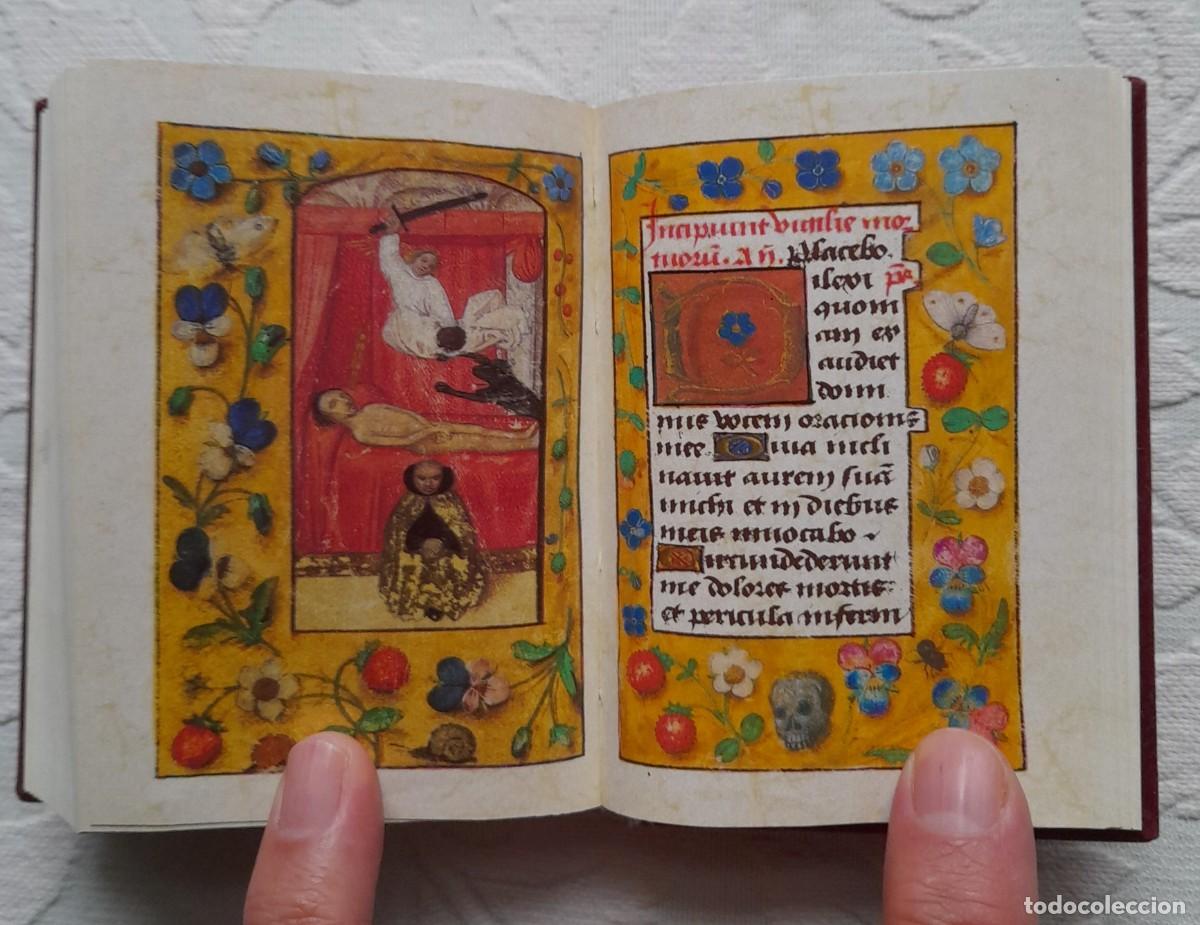 Incipiunt vigilie mor
tuorū. Añ. Placebo.
ilexi ps̄
quom
am ex
audiet
domi
nus vocem oracionis
mee. Quia incli
nauit aurem suā
michi et in diebus
meis inuocabo.
Circundederunt
me dolores mortis
et pericula inferni
todocoleccion